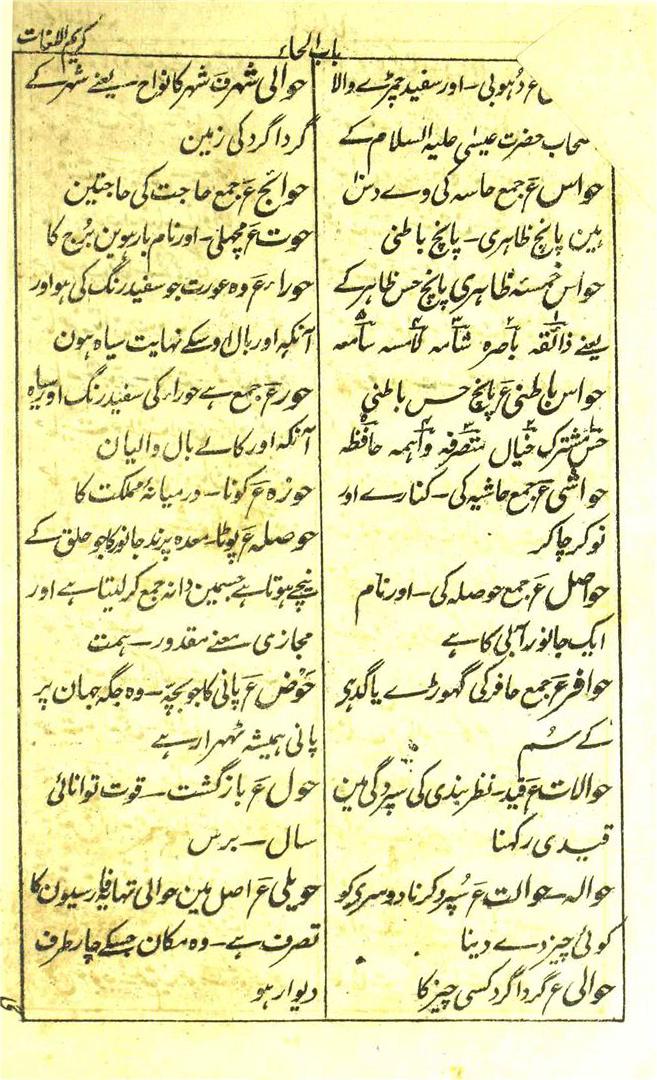 کریم اللغات
باب الحاء
ع دہوبی - اور سفید چمڑے والا
صحاب حضرت عیسیٰ علیہ السلام کے
حواس ع جمع حاسہ کی وے دس
ہین پانچ ظاہری - پانچ باطنی
حواس خمسہ ظاہری پانچ حس ظاہر کے
یعنے ذائقہ باصرہ شامہ لامسہ سامعہ
حواس باطنی ع پانچ حس باطنی
حس مشترک خیال متصرفہ واہمہ حافظہ
حواشی ع جمع حاشیہ کی - کنارے اور
نوکر چاکر
حواصل ع جمع حوصلہ کی - اور نام
ایک جانور آبی کا ہے
حوافر ع جمع حافر کی گھوڑے یا گدہی
کے سُم
حوالات ع قید - نظر بندی کی سپردگی مین
قیدی رکہنا
حوالہ - حوالت ع سُپرد کرنا دوسری کو
کوئی چیز دے دینا
حوالی ع گرداگرد کسی چیز کا
حوالی شہر ف شہر کا نواح - یعنے شہر کے
گرداگرد کی زمین
حوائج ع جمع حاجت کی حاجتین
حوت ع مچہلی - اور نام بارہوین بُرج کا
حوراء ع وہ عورت جو سفید رنگ کی ہو اور
آنکہہ اور بال اوسکے نہایت سیاہ ہون
حور ع جمع ہے حوراء کی سفید رنگ اور سیاہ
آنکہہ اور کالے بال والیان
حوزہ ع کونا - درمیانہ مملکت کا
حوصلہ ع پوٹا - معدہ پرند جانور کا جو حلق کے
نیچے ہوتا ہے جسمین دانہ جمع کر لیتا ہے اور
مجازی معنے مقدور - ہمت
حَوْض ع پانی کا جو بچہ - وہ جگہ جہان پر
پانی ہمیشہ ٹھہرا رہے
حول ع بازگشت - قوت توانائی
سال - برس
حویلی ع اصل مین حوالی تہا یہ فارسیون کا
تصرف ہے - وہ مکان جسکے چار طرف
دیوار ہو